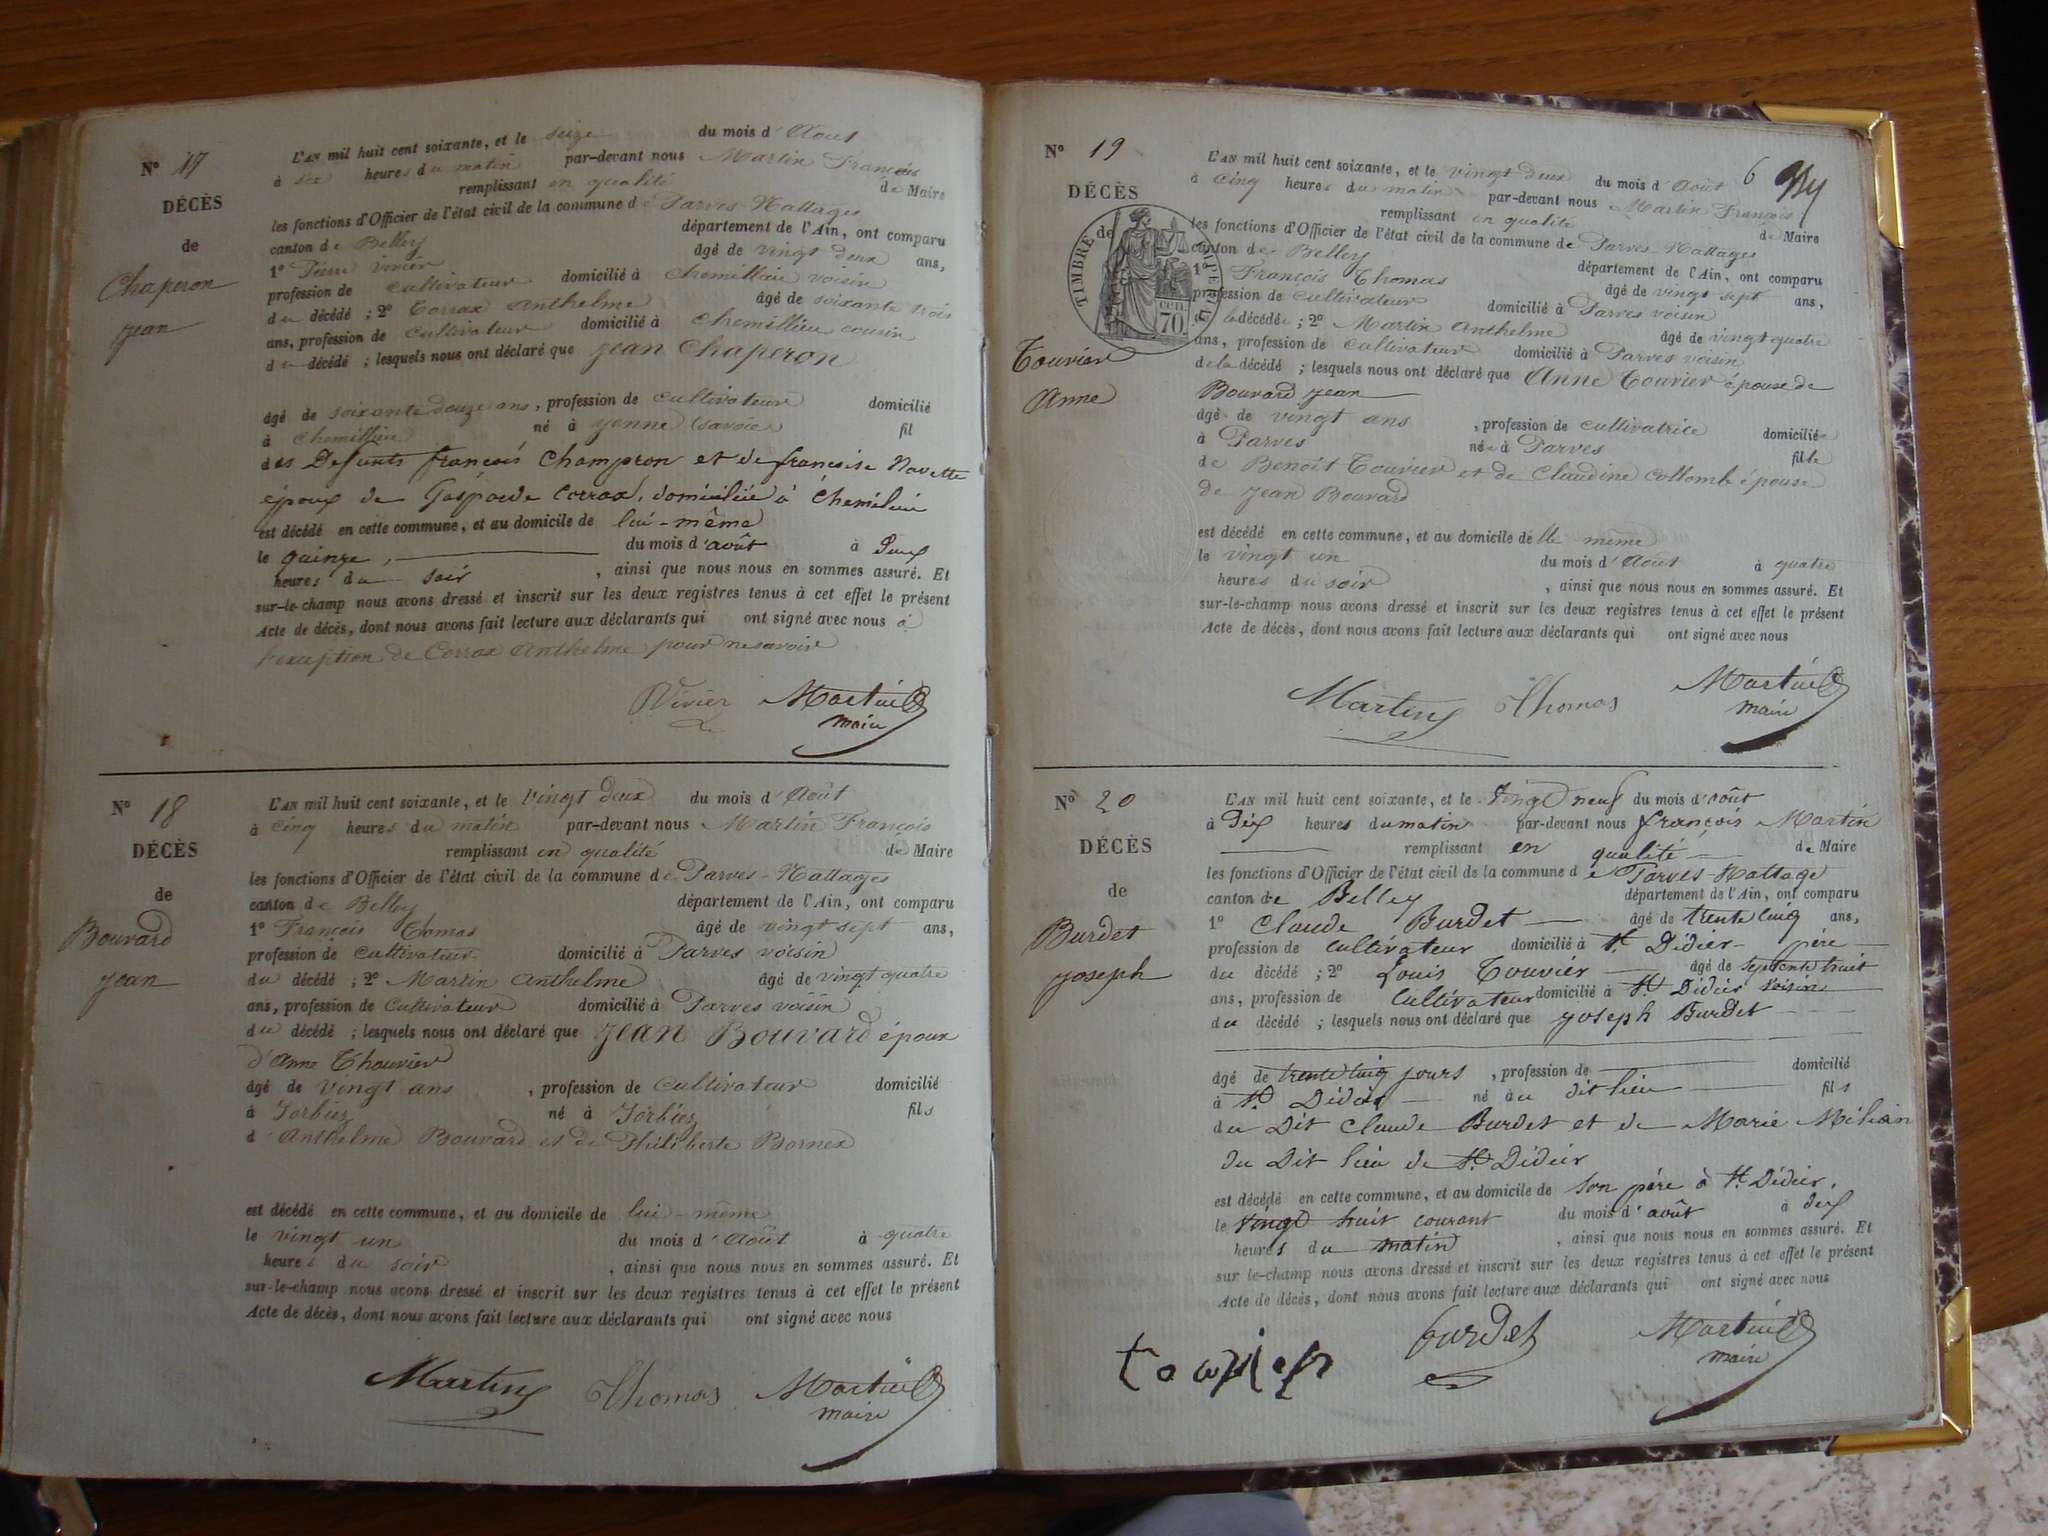 N° 17
DÉCÈS
de
Chaperon
jean
L'AN mil huit cent soixante, et le seize du mois d'Aout
à six heures du matin par-devant nous Martin François
remplissant en qualité de Maire
les fonctions d'Officier de l'état civil de la commune de Parves-Nattages
canton de Belley département de l'Ain, ont comparu
1° Pierre Vivier âgé de vingt deux ans,
profession de cultivateur domicilié à chemillieu voisin
du décédé ; 2° Corrax Anthelme âgé de soixante trois
ans, profession de cultivateur domicilié à chemillieu cousin
du décédé ; lesquels nous ont déclaré que jean Chaperon
âgé de soixante douze ans, profession de cultivateur domicilié
à chemillieu né à yenne (savoie) fil
des Defunts françois Champron et de françoise Navette
époux de Gasparde Corrax, domiciliée à Chemilieu
est décédé en cette commune, et au domicile de lui-même
le quinze, du mois d'août à Deux
heures du soir, ainsi que nous nous en sommes assuré. Et
sur-le-champ nous avons dressé et inscrit sur les deux registres tenus à cet effet le présent
Acte de décès, dont nous avons fait lecture aux déclarants qui ont signé avec nous à
l'exception de Corrax Anthelme pour ne savoir
Vivier Martin
maire
N° 18
DÉCÈS
de
Bouvard
jean
L'AN mil huit cent soixante, et le vingt deux du mois d'Août
à cinq heures du matin par-devant nous Martin François
remplissant en qualité de Maire
les fonctions d'Officier de l'état civil de la commune de Parves-Nattages
canton de Belley département de l'Ain, ont comparu
1° François Thomas âgé de vingt sept ans,
profession de cultivateur domicilié à Parves voisin
du décédé ; 2° Martin Anthelme âgé de vingt quatre
ans, profession de Cultivateur domicilié à Parves voisin
du décédé ; lesquels nous ont déclaré que jean Bouvard époux
d'Anne Thouvier
âgé de vingt ans, profession de cultivateur domicilié
à Sorbiez né à Sorbiez fils
d'Anthelme Bouvard et de Philiberte Bornex
est décédé en cette commune, et au domicile de lui-même
le vingt un du mois d'Août à quatre
heures du soir, ainsi que nous nous en sommes assuré. Et
sur-le-champ nous avons dressé et inscrit sur les deux registres tenus à cet effet le présent
Acte de décès, dont nous avons fait lecture aux déclarants qui ont signé avec nous
Martin Thomas Martin
maire
6
N° 19
DÉCÈS
de
TIMBRE IMPÉRIAL
70 cen.
Touvier
Anne
L'AN mil huit cent soixante, et le vingt deux du mois d'Août
à cinq heures du matin par-devant nous Martin François
remplissant en qualité de Maire
les fonctions d'Officier de l'état civil de la commune de Parves-Nattages
canton de Belley département de l'Ain, ont comparu
1° François Thomas âgé de vingt sept ans,
profession de cultivateur domicilié à Parves voisin
de la décédée ; 2° Martin Anthelme âgé de vingt quatre
ans, profession de cultivateur domicilié à Parves voisin
de la décédé ; lesquels nous ont déclaré que Anne Touvier épouse de
Bouvard jean
âgé de vingt ans, profession de cultivatrice domiciliée
à Parves née à Parves fille
de Benoît Touvier et de Claudine Collomb épouse
de jean Bouvard
est décédé en cette commune, et au domicile delle même
le vingt un du mois d'Août à quatre
heures du soir, ainsi que nous nous en sommes assuré. Et
sur-le-champ nous avons dressé et inscrit sur les deux registres tenus à cet effet le présent
Acte de décès, dont nous avons fait lecture aux déclarants qui ont signé avec nous
Martin Thomas Martin
maire
N° 20
DÉCÈS
de
Burdet
joseph
L'AN mil huit cent soixante, et le vingt neuf du mois d'août
à Dix heures du matin par-devant nous françois Martin
remplissant en qualité de Maire
les fonctions d'Officier de l'état civil de la commune de Parves-Nattage
canton de Belley département de l'Ain, ont comparu
1° Claude Burdet âgé de trente cinq ans,
profession de cultivateur domicilié à St. Didier père
du décédé ; 2° Louis Touvier âgé de septente huit
ans, profession de cultivateur domicilié à St. Didier voisin
du décédé ; lesquels nous ont déclaré que joseph Burdet
âgé de trente cinq jours, profession de domicilié
à St. Didier né au dit lieu fils
du Dit Claude Burdet et de Marie Milian
du Dit lieu de St. Didier
est décédé en cette commune, et au domicile de son père à St. Didier,
le vingt huit courant du mois d'août à dix
heures du matin, ainsi que nous nous en sommes assuré. Et
sur le-champ nous avons dressé et inscrit sur les deux registres tenus à cet effet le présent
Acte de décès, dont nous avons fait lecture aux déclarants qui ont signé avec nous
touvier burdet Martin
maire